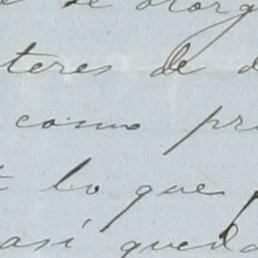 se otorg
teres de d
como pr
lo que p
así queda